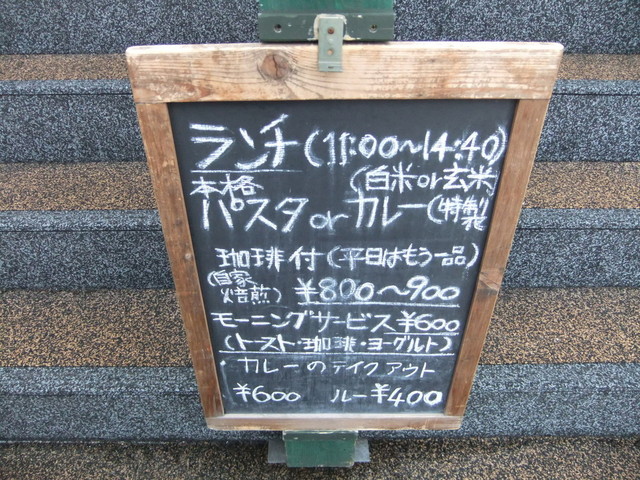 ランチ(11:00〜14:40)
本格 (白米or玄米
パスタorカレー(特製)
珈琲付(平日はもう一品)
(自家焙煎) ¥800〜900
モーニングサービス¥600
(トースト・珈琲・ヨーグルト)
・カレーのテイクアウト
¥600 ルー¥400